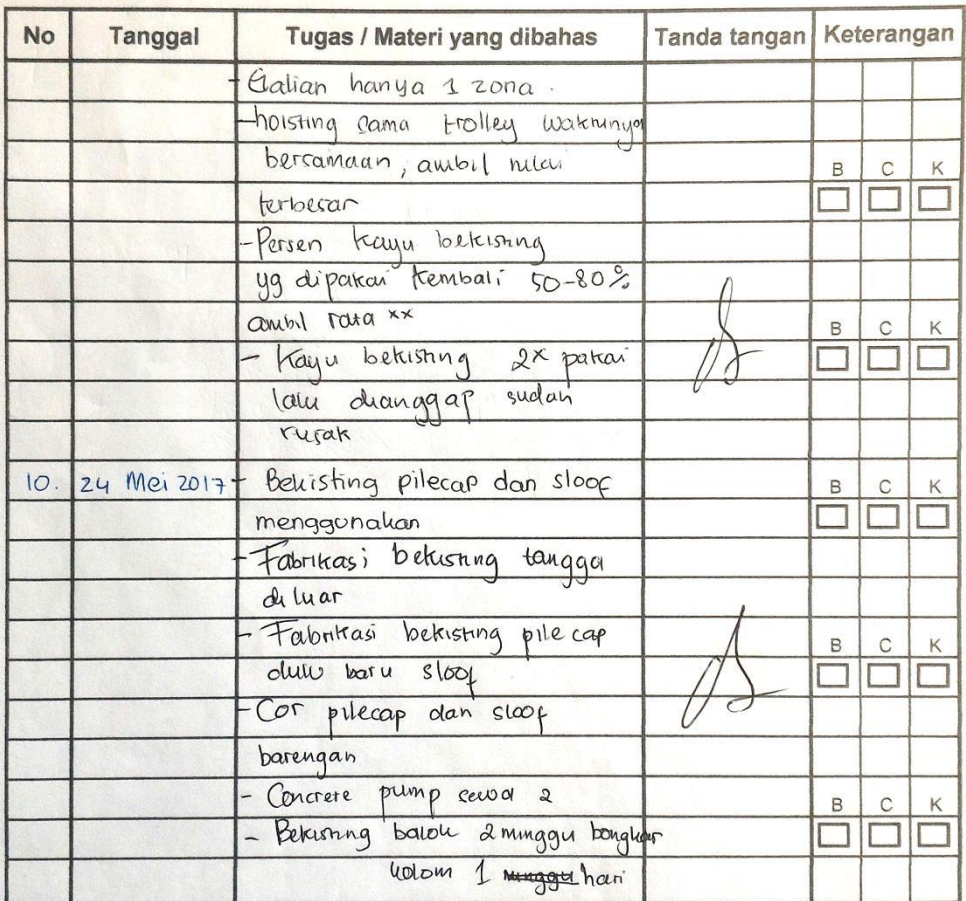 No Tanggal Tugas / Materi yang dibahas Tanda tangan Keterangan
- Galian hanya 1 zona.
- hoisting sama trolley waktunya
bersamaan, ambil nilai
B C K
terbesar
- Persen kayu bekisting
yg dipakai kembali 50-80%
ambil rata xx
B C K
- Kayu bekisting 2x pakai
lalu dianggap sudah
rusak
10. 24 Mei 2017 - Bekisting pilecap dan sloof
B C K
menggunakan
- Fabrikasi bekisting tangga
di luar
- Fabrikasi bekisting pile cap
B C K
dulu baru sloof
- Cor pilecap dan sloof
barengan
- Concrete pump sewa 2
B C K
- Bekisting balok 2 minggu bongkar
kolom 1 minggu hari